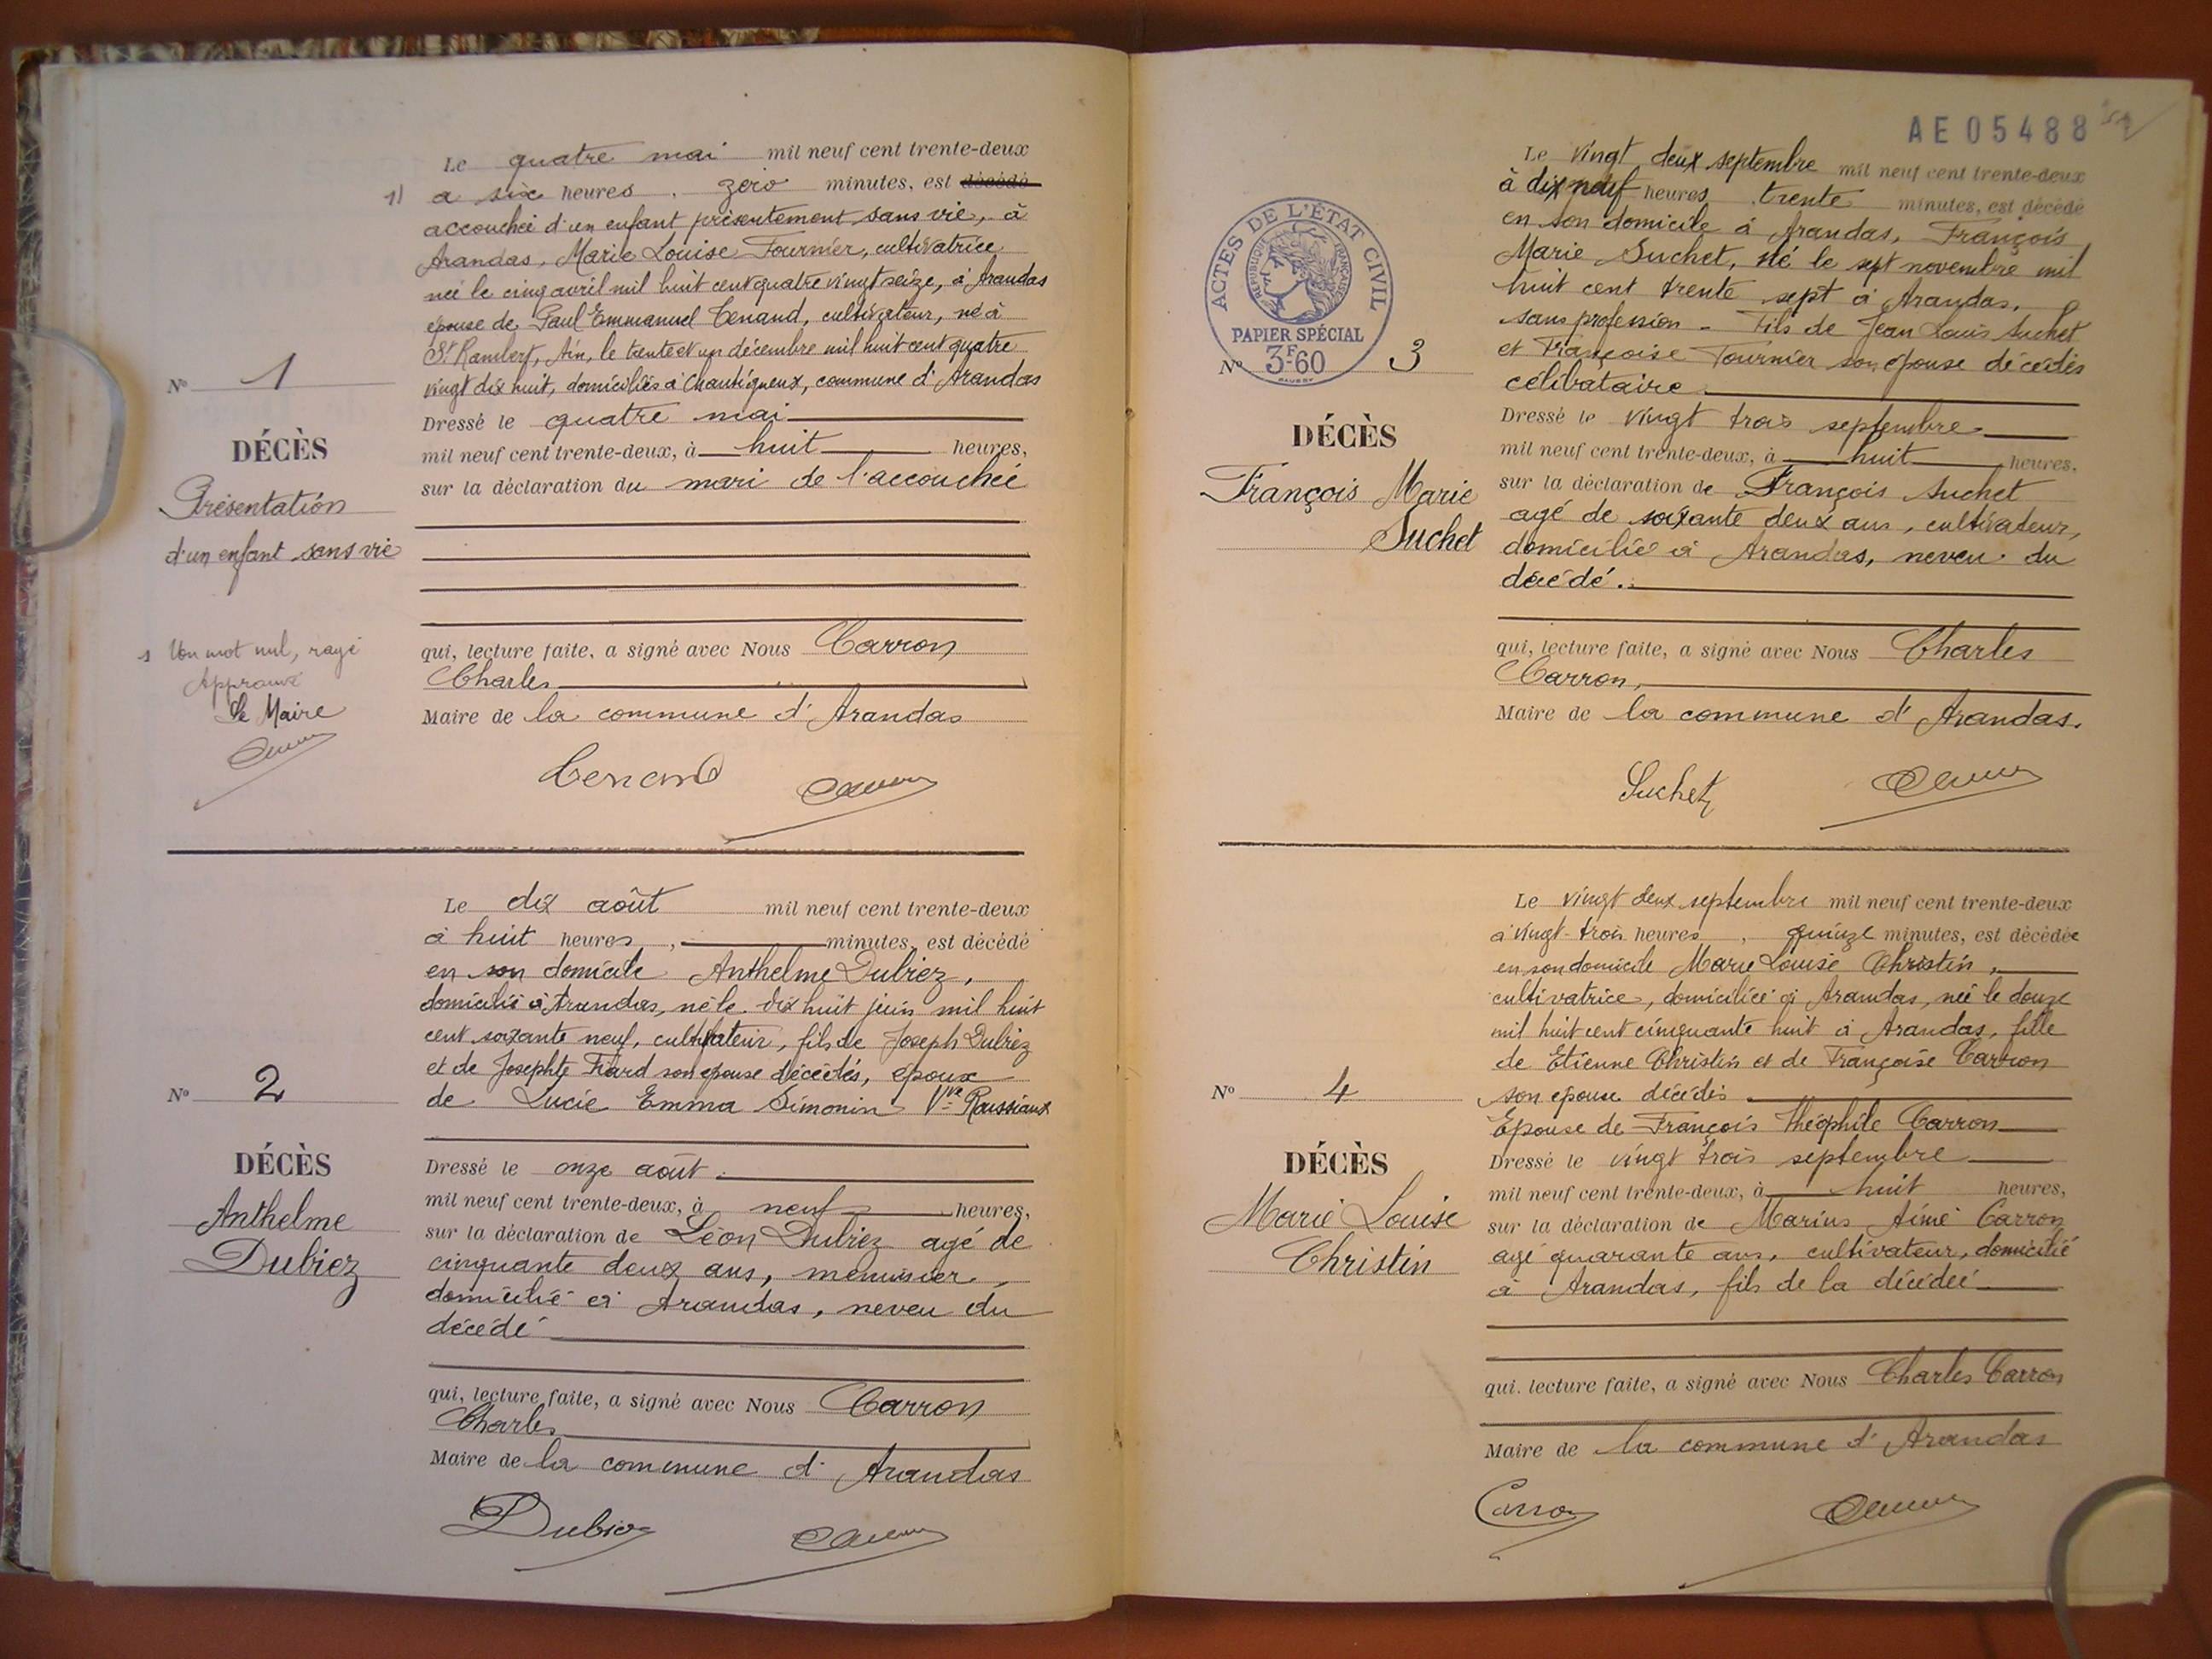 Le quatre mai mil neuf cent trente-deux
1) a six heures, zéro minutes, est décédé
accouchée d'un enfant présentement sans vie, à
Arandas, Marie Louise Fournier, cultivatrice
née le cinq avril mil huit cent quatre vingt seize, à Arandas
épouse de Paul Emmanuel Tenand, cultivateur, né à
St Rambert, Ain, le trente et un décembre mil huit cent quatre
vingt dix huit, domiciliés à Chantigneux, commune d'Arandas
Dressé le quatre mai
mil neuf cent trente-deux, à huit heures,
sur la déclaration du mari de l'accouchée
qui, lecture faite, a signé avec Nous Carron
Charles
Maire de la commune d'Arandas
Tenand
No 1
DÉCÈS
Présentation
d'un enfant sans vie
1 Un mot nul, rayé
Approuvé
Le Maire
Le dix août mil neuf cent trente-deux
à huit heures, minutes, est décédé
en son domicile Anthelme Dubiez,
domicilié à Arandas, né le dix huit juin mil huit
cent soixante neuf, cultivateur, fils de Joseph Dubiez
et de Josephte Fiard son épouse décédés, époux
de Lucie Emma Simonin Vve Roussiaux
Dressé le onze août
mil neuf cent trente-deux, à neuf heures,
sur la déclaration de Léon Dubiez agé de
cinquante deux ans, menuisier,
domicilié à Arandas, neveu du
décédé
qui, lecture faite, a signé avec Nous Carron
Charles
Maire de la commune d'Arandas
Dubiez
No 2
DÉCÈS
Anthelme
Dubiez
AE05488
Le vingt deux septembre mil neuf cent trente-deux
à dix neuf heures trente minutes, est décédé
en son domicile à Arandas, François
Marie Suchet, né le sept novembre mil
huit cent trente sept à Arandas,
sans profession - Fils de Jean Louis Suchet
et Françoise Fournier son épouse décédés
célibataire
Dressé le vingt trois septembre
mil neuf cent trente-deux, à huit heures,
sur la déclaration de François Suchet
agé de soixante deux ans, cultivateur,
domicilié à Arandas, neveu du
décédé.
qui, lecture faite, a signé avec Nous Charles
Carron,
Maire de la commune d'Arandas.
Suchet
ACTES DE L'ÉTAT CIVIL
RÉPUBLIQUE FRANÇAISE
PAPIER SPÉCIAL
3F60
No 3
DÉCÈS
François Marie
Suchet
Le vingt deux septembre mil neuf cent trente-deux
à vingt-trois heures, quinze minutes, est décédée
en son domicile Marie Louise Christin,
cultivatrice, domiciliée à Arandas, née le douze
mil huit cent cinquante huit à Arandas, fille
de Etienne Christin et de Françoise Carron
son épouse décédés
Epouse de François Théophile Carron
Dressé le vingt trois septembre
mil neuf cent trente-deux, à huit heures,
sur la déclaration de Marius Aimé Carron
agé quarante ans, cultivateur, domicilié
à Arandas, fils de la décédée
qui, lecture faite, a signé avec Nous Charles Carron
Maire de la commune d'Arandas
Carron
No 4
DÉCÈS
Marie Louise
Christin